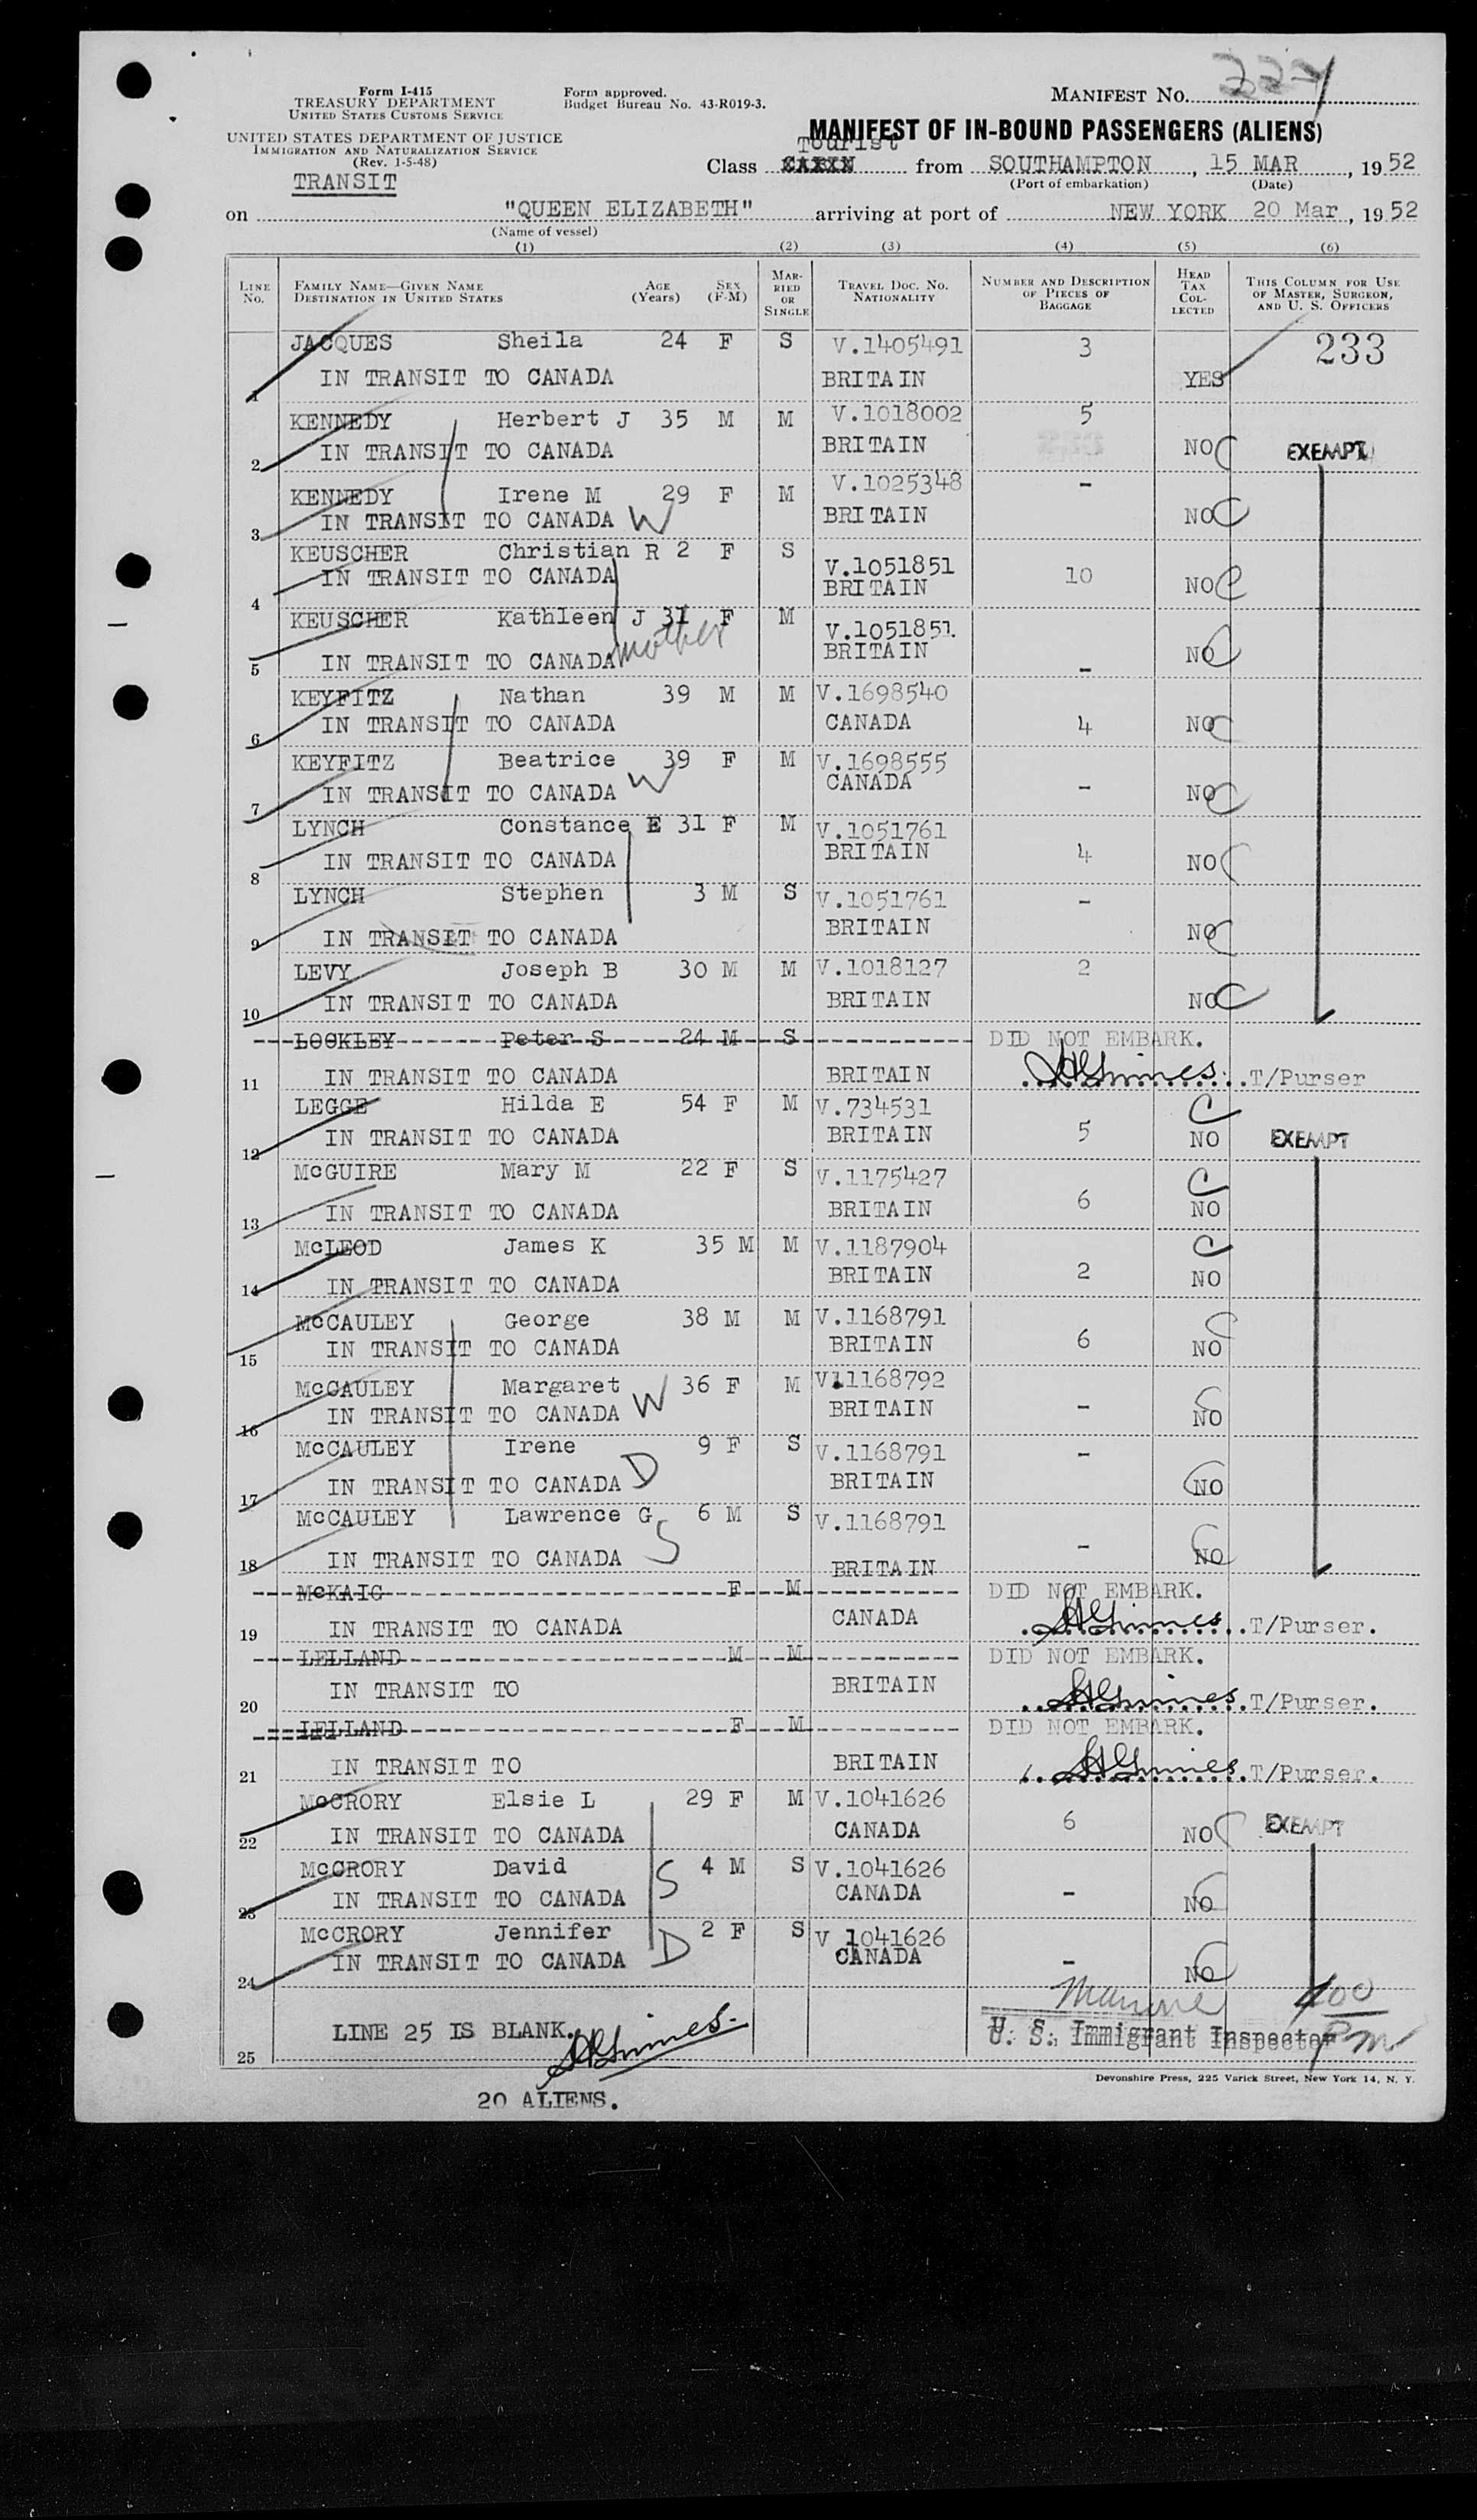 Form I-415
TREASURY DEPARTMENT
UNITED STATES CUSTOMS SERVICE
UNITED STATES DEPARTMENT OF JUSTICE
IMMIGRATION AND NATURALIZATION SERVICE
(Rev. 1-5-48)
TRANSIT
Form approved.
Budget Bureau No. 43-R019-3.
MANIFEST No.
MANIFEST OF IN-BOUND PASSENGERS (ALIENS)
Tourist
Class CABIN from SOUTHAMPTON, 15 MAR, 1952
(Port of embarkation) (Date)
on "QUEEN ELIZABETH" arriving at port of NEW YORK 20 Mar, 1952
(Name of vessel)
(1) (2) (3) (4) (5) (6)
LINE No. FAMILY NAME—GIVEN NAME DESTINATION IN UNITED STATES AGE (Years) SEX (F-M) MARRIED OR SINGLE TRAVEL DOC. NO. NATIONALITY NUMBER AND DESCRIPTION OF PIECES OF BAGGAGE HEAD TAX COLLECTED THIS COLUMN FOR USE OF MASTER, SURGEON, AND U. S. OFFICERS
JACQUES Sheila 24 F S V.1405491 3 233
1 IN TRANSIT TO CANADA BRITAIN YES
KENNEDY Herbert J 35 M M V.1018002 5
2 IN TRANSIT TO CANADA BRITAIN NO C EXEMPT
KENNEDY Irene M 29 F M V.1025348 -
3 IN TRANSIT TO CANADA W BRITAIN NO C
KEUSCHER Christian R 2 F S V.1051851
4 IN TRANSIT TO CANADA BRITAIN 10 NO C
KEUSCHER Kathleen J 31 F M V.1051851
5 IN TRANSIT TO CANADA mother BRITAIN - NO C
KEYFITZ Nathan 39 M M V.1698540
6 IN TRANSIT TO CANADA CANADA 4 NO C
KEYFITZ Beatrice 39 F M V.1698555
7 IN TRANSIT TO CANADA W CANADA - NO C
LYNCH Constance E 31 F M V.1051761
8 IN TRANSIT TO CANADA BRITAIN 4 NO C
LYNCH Stephen 3 M S V.1051761 -
9 IN TRANSIT TO CANADA BRITAIN NO C
LEVY Joseph B 30 M M V.1018127 2
10 IN TRANSIT TO CANADA BRITAIN NO C
LOCKLEY Peter S 24 M S DID NOT EMBARK.
11 IN TRANSIT TO CANADA BRITAIN T/Purser
LEGGE Hilda E 54 F M V.734531 C
12 IN TRANSIT TO CANADA BRITAIN 5 NO EXEMPT
McGUIRE Mary M 22 F S V.1175427 C
13 IN TRANSIT TO CANADA BRITAIN 6 NO
McLEOD James K 35 M M V.1187904 C
14 IN TRANSIT TO CANADA BRITAIN 2 NO
McCAULEY George 38 M M V.1168791 C
15 IN TRANSIT TO CANADA BRITAIN 6 NO
McCAULEY Margaret 36 F M V.1168792
16 IN TRANSIT TO CANADA W BRITAIN - NO C
McCAULEY Irene 9 F S V.1168791 -
17 IN TRANSIT TO CANADA D BRITAIN NO C
McCAULEY Lawrence G 6 M S V.1168791
18 IN TRANSIT TO CANADA S BRITAIN - NO C
McKAIG F M DID NOT EMBARK.
19 IN TRANSIT TO CANADA CANADA T/Purser.
LELLAND M M DID NOT EMBARK.
20 IN TRANSIT TO BRITAIN T/Purser.
LELLAND F M DID NOT EMBARK.
21 IN TRANSIT TO BRITAIN T/Purser.
McCRORY Elsie L 29 F M V.1041626
22 IN TRANSIT TO CANADA CANADA 6 NO C EXEMPT
McCRORY David 4 M S V.1041626
23 IN TRANSIT TO CANADA S CANADA - NO C
McCRORY Jennifer 2 F S V 1041626
24 IN TRANSIT TO CANADA D CANADA - NO C
LINE 25 IS BLANK. U. S. Immigrant Inspector
25
Devonshire Press, 225 Varick Street, New York 14, N. Y.
20 ALIENS.